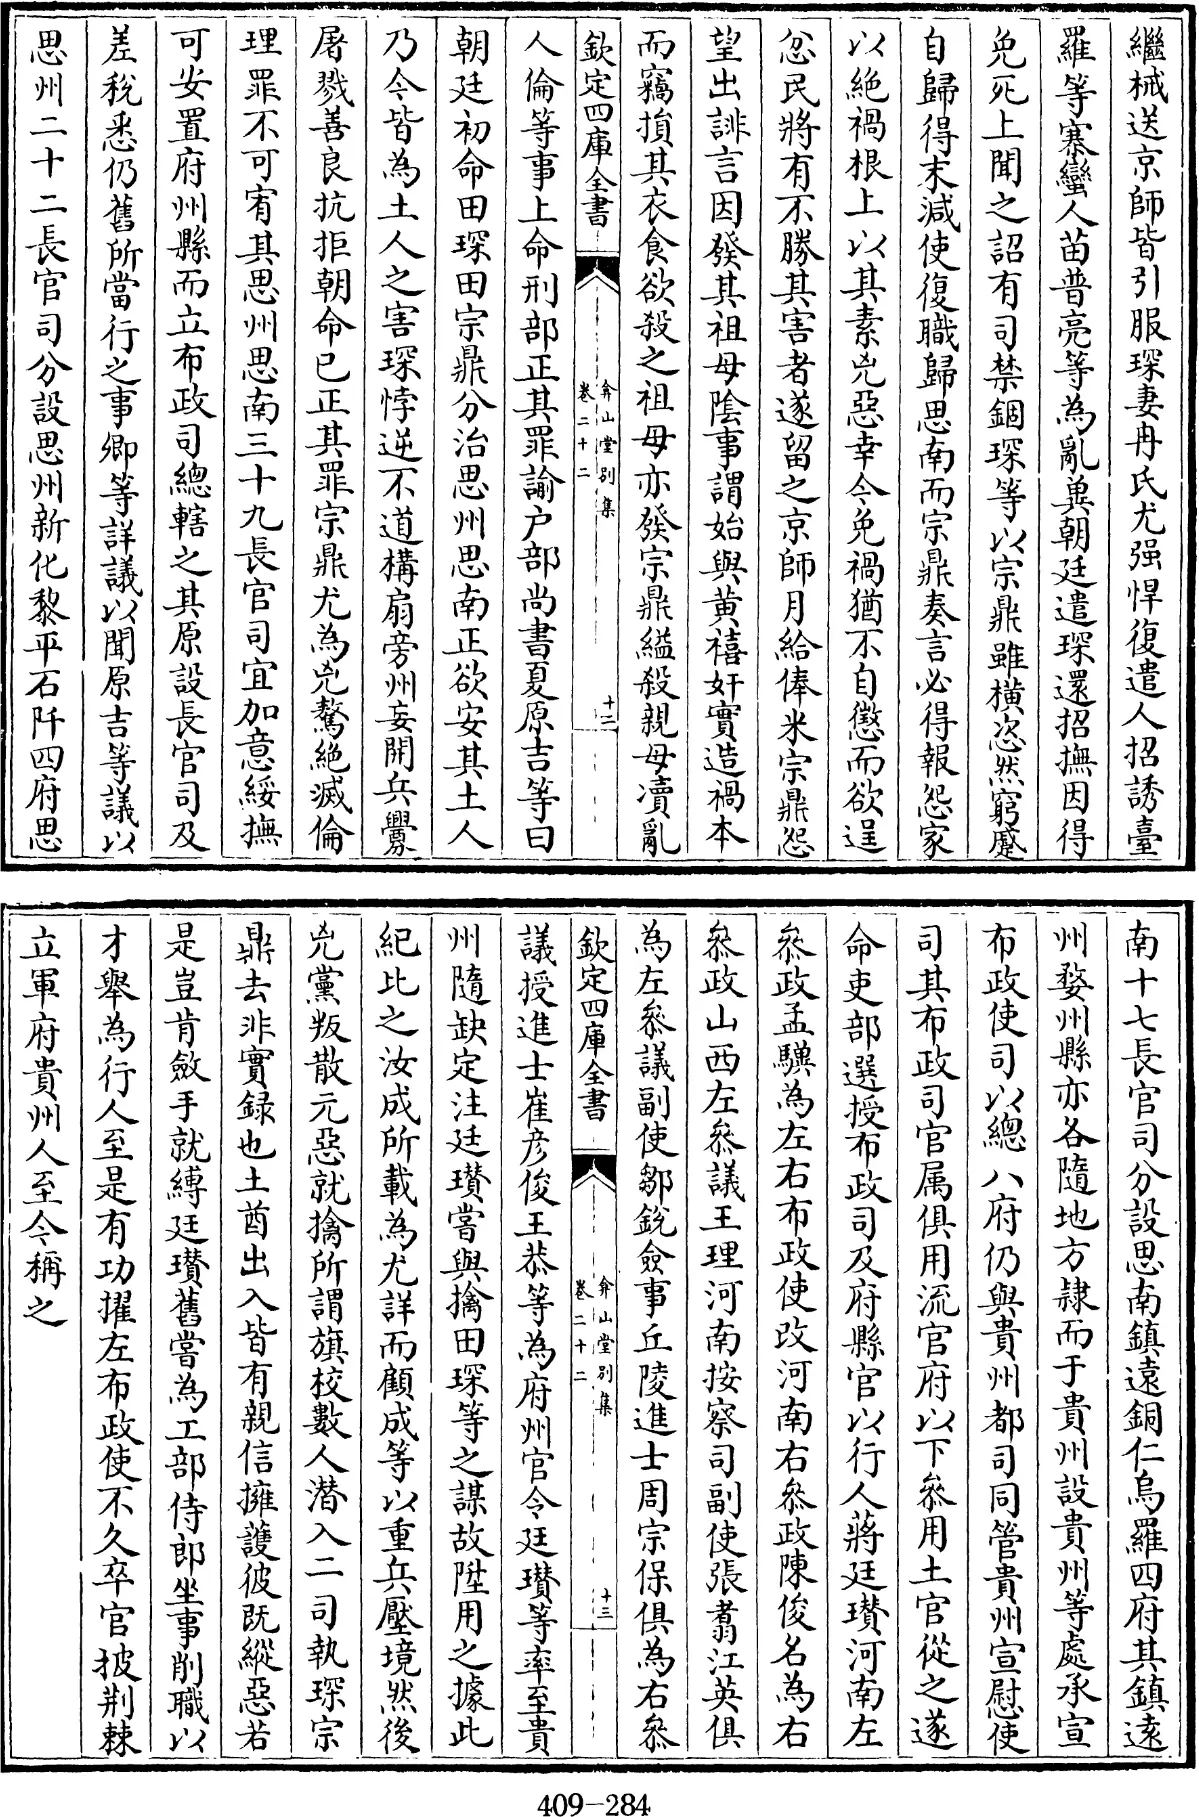 繼械送京師皆引服琛妻冉氏尤强悍復遣人招誘臺
羅等寨蠻人苗普亮等為亂兾朝廷遣琛還招撫因得
免死上聞之詔有司禁錮琛等以宗鼎雖横恣然窮蹙
自歸得末減使復職歸思南而宗鼎奏言必得報怨家
以絶禍根上以其素兇惡幸今免禍猶不自懲而欲逞
忿民將有不勝其害者遂留之京師月給俸米宗鼎怨
望出誹言因發其祖母陰事謂始與黄禧奸實造禍本
而竊損其衣食欲殺之祖母亦發宗鼎縊殺親母瀆亂
欽定四庫全書
弇山堂别集
卷二十二
十二
人倫等事上命刑部正其罪諭户部尚書夏原吉等曰
朝廷初命田琛田宗鼎分治思州思南正欲安其土人
乃今皆為土人之害琛悖逆不道構扇旁州妄開兵釁
屠戮善良抗拒朝命已正其罪宗鼎尤為兇驁絶滅倫
理罪不可宥其思州思南三十九長官司宜加意綏撫
可安置府州縣而立布政司總轄之其原設長官司及
差稅悉仍舊所當行之事卿等詳議以聞原吉等議以
思州二十二長官司分設思州新化黎平石阡四府思
南十七長官司分設思南鎮遠銅仁烏羅四府其鎮遠
州婺州縣亦各隨地方隷而于貴州設貴州等處承宣
布政使司以總八府仍與貴州都司同管貴州宣慰使
司其布政司官属俱用流官府以下叅用土官從之遂
命吏部選授布政司及府縣官以行人蔣廷瓚河南左
叅政孟驥為左右布政使改河南右叅政陳俊名為右
叅政山西左叅議王理河南按察司副使張翥江英俱
為左叅議副使鄒銳僉事丘陵進士周宗保俱為右叅
欽定四庫全書
弇山堂别集
卷二十二
十三
議授進士崔彦俊王恭等為府州官令廷瓚等率至貴
州隨缺定注廷瓚嘗與擒田琛等之謀故陞用之據此
紀比之汝成所載為尤詳而顧成等以重兵壓境然後
兇黨叛散元惡就擒所謂旗校數人潜入二司執琛宗
鼎去非實録也土酋出入皆有親信擁護彼既縱惡若
是豈肯斂手就縛廷瓚舊嘗為工部侍郎坐事削職以
才舉為行人至是有功擢左布政使不久卒官披荆棘
立軍府貴州人至今稱之
409-284